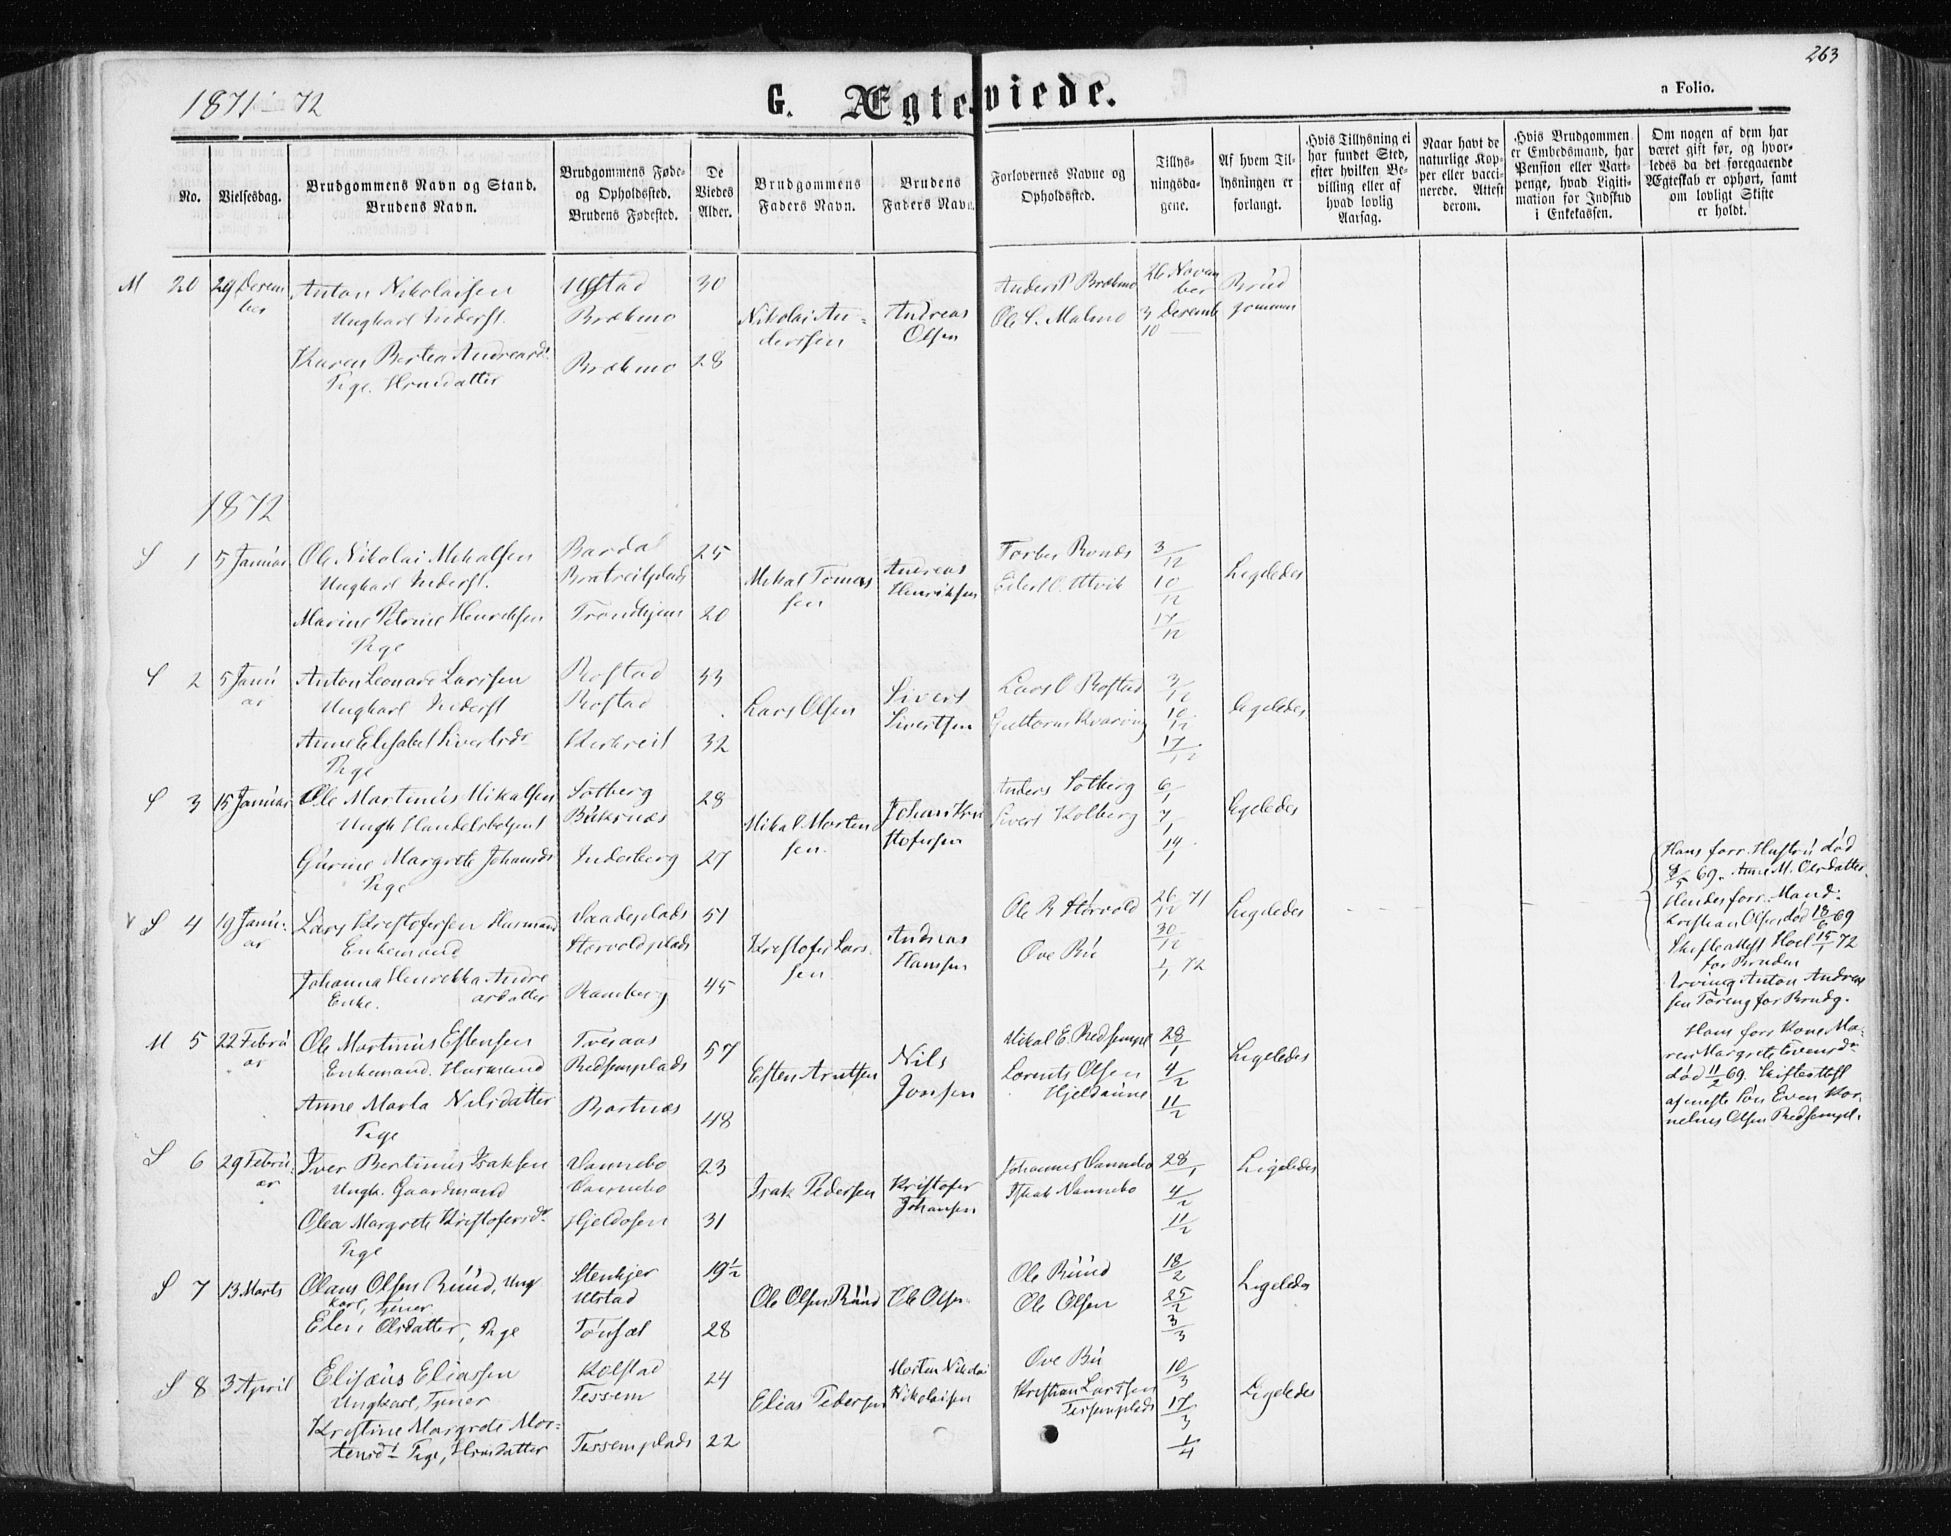 263
1871-72
G. Ægteviede.
a Folio.
No.
Vielsesdag.
Brudgommens Navn og Stand.
Brudens Navn.
Brudgommens Føde-
og Opholdssted.
Brudens Fødested.
De
Viedes
Alder.
Brudgommens
Faders Navn.
Brudens
Faders Navn.
Forlovernes Navne og
Opholdssted.
Tillys-
ningsda-
gene.
Af hvem Til-
lysningen er
forlangt.
Hvis Tillysning ei
har fundet Sted,
efter hvilken Be-
villing eller af
hvad lovlig
Aarsag.
Naar havt de
naturlige Kop-
per eller vacci-
nerede. Attest
derom.
Hvis Brudgommen
er Embedsmand, har
Pension eller Vart-
penge, hvad Ligiti-
mation for Indskud
i Enkekassen.
Om nogen af dem har
været gift før, og hvor-
ledes da det foregaaende
Ægteskab er ophørt, samt
om lovligt Skifte
er holdt.
M 20 29 Decem
ber
Anton Nikolaisen
Ungkarl Inderst.
Karen Bertea Andreasd.
Pige. Hmdatter
Ulstad
Brækmo
Brækmo
30
28
Nikolai An-
dersen
Andreas
Olsen
Anders P Brækmo
Ole L. Malmo
26 Novem
ber
3 Decemb
10
Brud
gommen
1872
S 1 5 Januar
Ole Nikolai Mikalsen
Ungkarl Inderst.
Marine Petrine Henriksen
Pige
Bardal
Trondhjem
25
20
Mikal Tomas
sen
Andreas
Henriksen
3/12
10/12
17/12
Ligeledes
S 2 5 Janu
ar
Anton Leonard Larsen
Ungkarl Inderst
Anne Elisabet Sivertsdr
Pige
Rostad
Rostad
33
32
Lars Olsen
Sivert
Sivertsen
Lars O Rostad
Guttorm Kvarving
3/12
10/12
17/12
Ligeledes
S 3 15 Januar
Ole Martinus Mikalsen
Ungk Handelsbetjent
Gurine Margrete Johansdr
Pige
Sotberg
Buksnæs
Inderberg
28
27
Mikal Morten
sen.
Johan Kri
stofersen
Anders Sotberg
Sivert Kolberg
6/1
7/1
14/1
Ligeledes
S 4 19 Janu-
ar
Lars Kristofersen Husmand
Enkemand
Johanna Henrikka Andre
asdatter
Enke.
Saadesplads
Størvoldplads
Ramberg
51
45
Kristofer Lars
sen.
Andreas
Hansen
Ole R Størvold
Ove Bu
26/12 71
30/12
1/1 72
Ligeledes
Hans forr. Hustru død
8/5 69. Anne M. Olsdatter.
Hendes forr. Mand.
Kristian Olsen død 18/6 69
Skifteattest Hoel 15/1 72
for Bruden
Anton Andrea
sen for Brudg.
M 5 22 Febru
ar
Ole Martinus Estensen
Enkemand. Husmand
Anne Marta Nilsdatter
Pige
Tresaas
Redsemplads
Bartnæs
57
48
Esten Arntsen
Nils
Jonsen
Mikal E. Redsempel
Lorents Olsen
Hjeldaune
28/1
4/2
11/2
Ligeledes
Hans forr Kone Ma-
ren Margrete Evensdr
død 11/2 69. Skifteattest
Søn Even Kor-
nelius Olsen Redsempel.
S 6 29 Febru-
ar
Iver Bertinus Isaksen
Ungk. Gaardmand
Olea Margrete Kristofersdr
Pige
Vannebo
Vannebo
Hjeldosen
23
31
Isak Pedersen
Kristofer
Johansen
Johannes Vannebo
Isak Vannebo
28/1
4/2
11/2
Ligeledes
S 7 13 Marts
Olaus Olsen Ruud, Ung
karl, Tjener
Elen Olsdatter, Pige
Stenkjer
Utstad
Tønsæt
19½
28
Ole Olsen Ruud
Ole Olsen
Ole Ruud
Ole Olsen
18/2
25/2
3/3
Ligeledes
S 8 3 April
Elisæus Eliassen
Ungkarl, Tjener
Kristine Margrete Mor-
tensdt Pige, Hmdatter
Kolstad
Tessem
Tessemplads
24
22
Elias Pedersen
Morten Nikolai
Nikolaisen
Ove Bu
Kristian Larssen
Tessemplads
10/3
17/3
1/4
Ligeledes